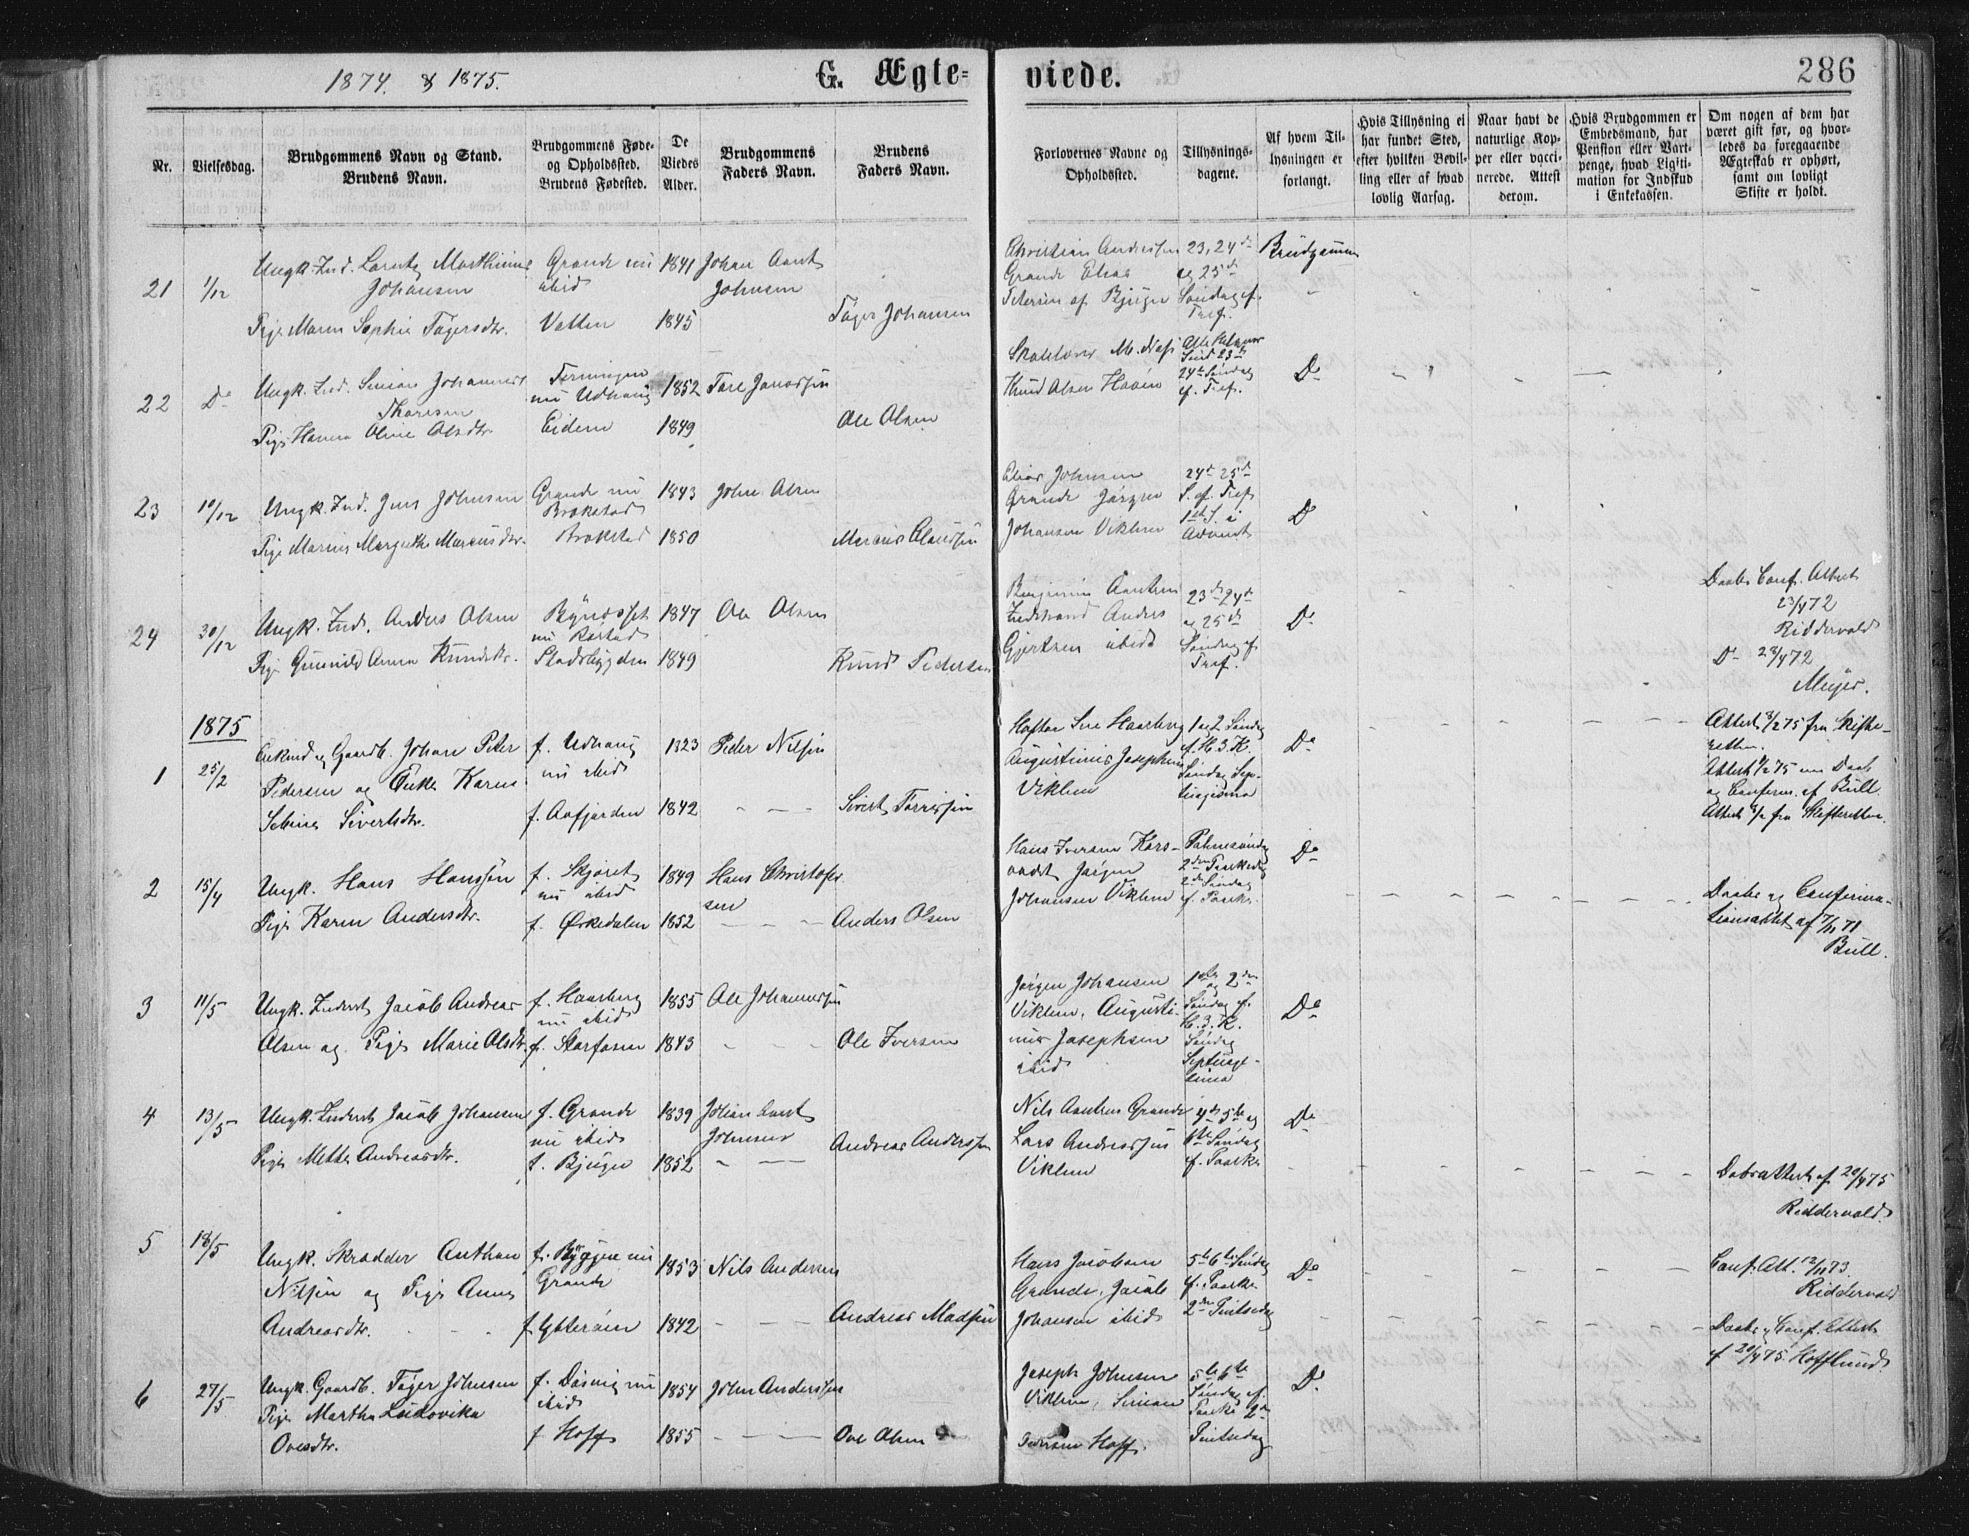 1874. & 1875.
G. Ægte-
viede.
286
Nr.
Vielsesdag.
Brudgommens Navn og Stand.
Brudens Navn.
Brudgommens Føde-
og Opholdssted.
Brudens Fødested.
De
Viedes
Alder.
Brudgommens
Faders Navn.
Brudens
Faders Navn.
Forlovernes Navne og
Opholdssted.
Tillysnings-
dagene.
Af hvem Til-
lysningen er
forlangt.
Hvis Tillysning ei
har fundet Sted,
efter hvilken Bevil-
ling eller af hvad
lovlig Aarsag.
Naar havt de
naturlige Kop-
per eller vacci-
nerede. Attest
derom.
Hvis Brudgommen er
Embedsmand, har
Pension eller Vart-
penge, hvad Ligiti-
mation for Indskud
i Enkekassen.
Om nogen af dem har
været gift før, og hvor-
ledes da foregaaende
Ægteskab er ophørt,
samt om lovligt
Skifte er holdt.
21
1/12
Ungk. Ind. Lorentz Morthinus
Johansen
Pige Maren Sophie Tøgersdtr.
Grande nu
ibid
Vatten
1841
1845
Johan Arnt
Johnsen
Tøger Johansen
Christian Andersen
Grande Elias
Petersen af Bjugn
23, 24de
og 25de
Søndag ef.
Tref.
Brudgommen
22
Do
Ungk. Ind. Simon Johannes
Thoresen
Pige Hanna Oline Olsdtr.
nu Udhaug
Eidem
1852
1849
Tore
Ole Olsen
Knud Olsen
Sønd 23de
24de Søndag
ef. Tref.
Do
23
10/12
Ungk. Ind. Jens Johnsen
Pige Marius Margrethe Marcusdtr.
Grande nu
Brekstad
Brekstad
1843
1850
John Olsen
Marcus
Elias Johnsen
Grande Jørgen
Johansen Viklem
24de 25de
S. ef. Tref
1ste S. i
Advent
Do
24
30/12
Ungk. Ind. Anders Olsen
Pige Gunnild Anna Knudsdtr.
Bynæsset
nu
Stadsbygden
1847
1849
Ole Olsen
Knud Pedersen
Anders
Gjertsen ibid
23de 24de
og 25de
Søndag ef
Tref.
Do
Daabs Conf. Attest
23/4 72
Riddervold
Do 23/4 72
Meyer.
1875
1
25/2
Enkmd og Gaardb. Johan Peter
Pedersen og Enke Karen
Sivertsdtr.
f. Udhaug
nu ibid
f. Aafjorden
1823
1842
Peder Nilsen
Sivert
Haarberg
Augustinus Josephsen
Viklem
1 og 2 Søndag
ef. H. 3. K.
Søndag Sep-
tuagesima
Do
fra Skifte-
retten.
og Conferm. af Bull
Attest fra Skifteretten.
2
15/4
Ungk. Hans Hanssen
Pige Karen Andersdtr.
f. Skjøret
nu ibid
f. Ørkedalen
1849
1852
Hans Christofer
sen
Anders Olsen
Hans Iversen Kars-
vaat Jørgen
Johansen Viklem
Palmesøndag
2den Paaskedag
2de Søndag
ef. Paaske
Do
Daabs og Conferma-
tionsattest af 7/11 71
Bull.
3
11/5
Ungk. Inderst Jacob Andreas
Olsen og Pige Marie Olsdtr.
f. Haarberg
nu ibid
f. Storfosen
1855
1843
Ole Johannessen
Ole Iversen
Jørgen Johansen
Viklem, Augusti-
nus Josephsen
ibid
1ste og 2den
Søndag ef.
H. 3. K.
Søndag
Septuage-
sima
Do
4
13/5
Ungk. Inderst Jacob Johansen
Pige Mette Andreasdtr.
f. Grande
nu ibid
f. Bjugn
1839
1852
Johan Arnt
Johnsen
Andreas Anderssen
Nils Grande
Lars Andreassen
Viklem
4de 5te og
6te Søndag
ef. Paaske
Do
Daabsattest af 20/4 75
Riddervold.
5
18/5
Ungk. Skrædder Anthon
Nilssen og Pige Anne
Andreasdtr.
nu
Grande
f. Ytterøien
1853
1842
Nils Andersen
Andreas Madssen
Hans Jacobsen
Grande, Jacob
Johansen ibid
5te 6te Søndag
ef. Paaske
2den Pintsedag
Do
Conf. Att. 12/11 73.
Riddervold
Daabs og Conf. Attest
af 20/4 75. Hofflund
6
27/5
Ungk. Gaardb. Tøger Johnsen
Pige Martha Ludovika
Ovesdtr.
f. Døsvig nu
ibid
f. Hoff
1854
1855
John Anderssen
Ove Olsen
Joseph Johnsen
Viklem, Simon
Pedersen Hoff.
5te 6te
Søndag ef.
Paaske 2den
Pintsedag
Do